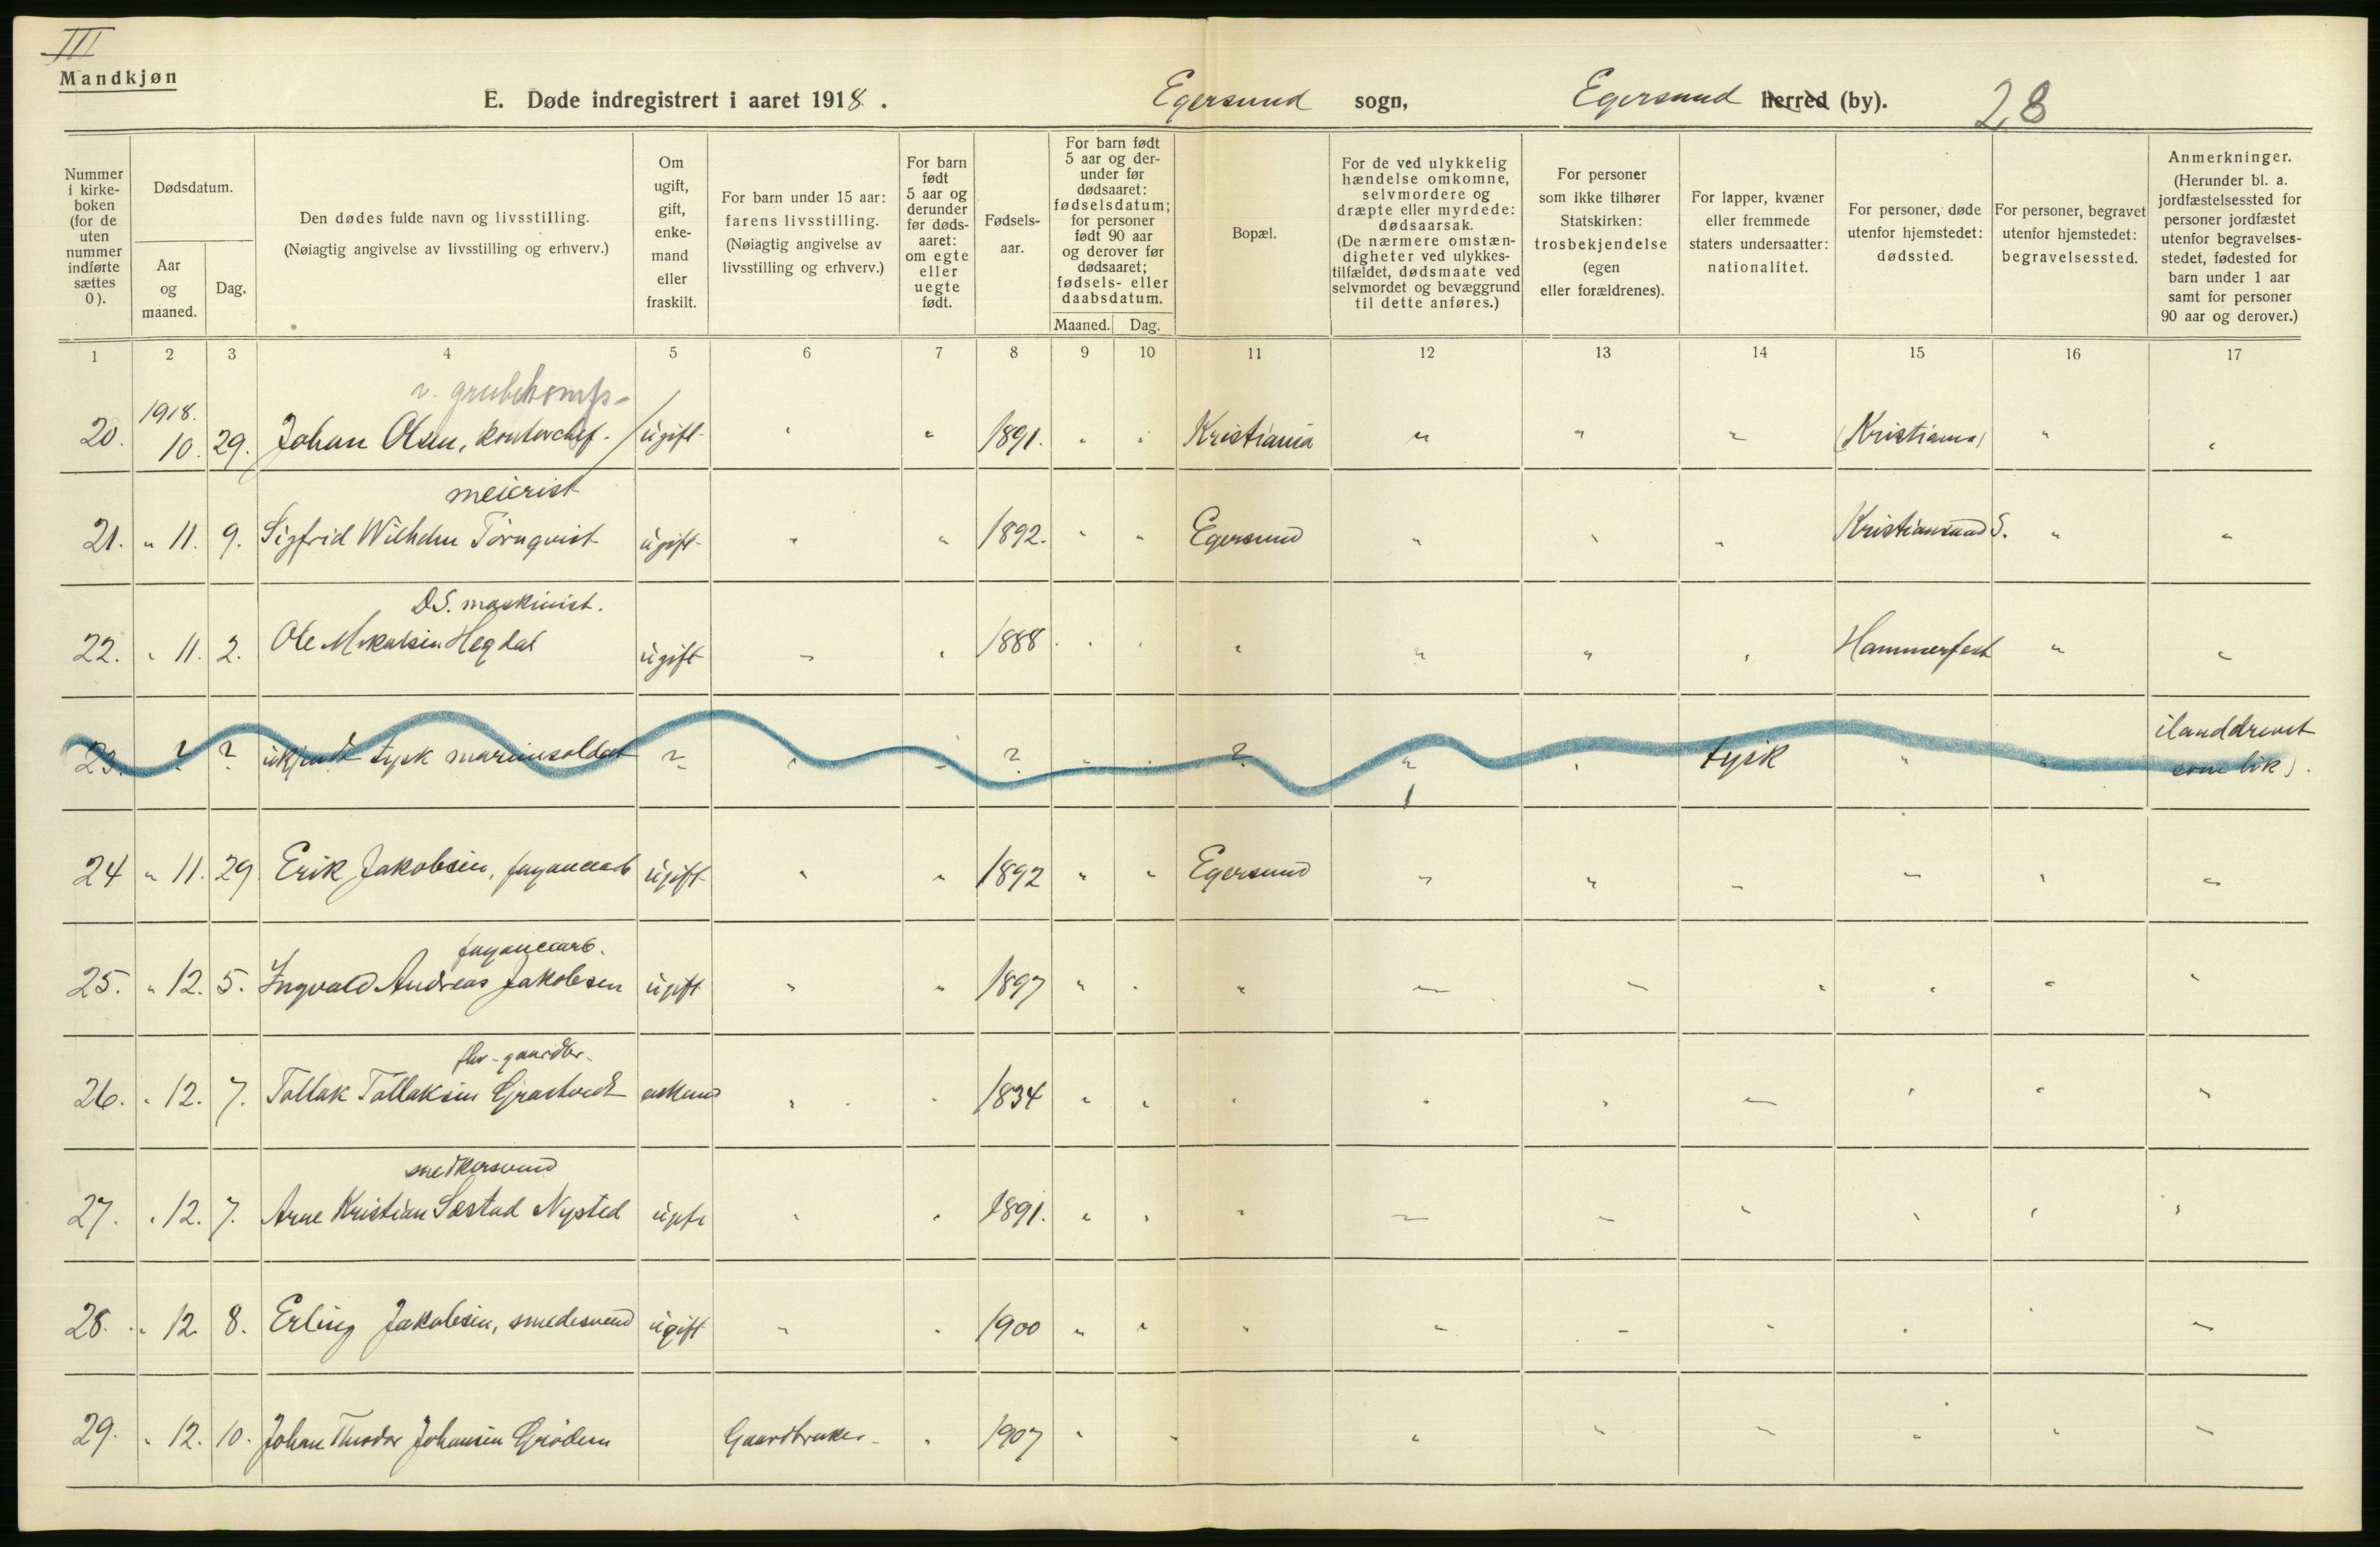 III
Mandkjøn
E. Døde indregistrert i aaret 1918. Egersund sogn, Egersund herred (by). 28
Nummer i kirke-boken (for de uten nummer indførte sættes 0).
Dødsdatum.
Aar og maaned.
Dag.
Den dødes fulde navn og livsstilling.
(Nøiagtig angivelse av livsstilling og erhverv.)
Om ugift, gift, enke-mand eller fraskilt.
For barn under 15 aar: farens livsstilling.
(Nøiagtig angivelse av livsstilling og erhverv.)
For barn født 5 aar og derunder før døds-aaret: om egte eller uegte født.
Fødsels-aar.
For barn født 5 aar og der-under før dødsaaret: fødselsdatum; for personer født 90 aar og derover før dødsaaret; fødsels- eller daabsdatum.
Maaned. Dag.
Bopæl.
For de ved ulykkelig hændelse omkomne, selvmordere og dræpte eller myrdede: dødsaarsak.
(De nærmere omstæn-digheter ved ulykkes-tilfældet, dødsmaate ved selvmordet og bevæggrund til dette anføres.)
For personer som ikke tilhører Statskirken: trosbekjendelse (egen eller forældrenes).
For lapper, kvæner eller fremmede staters undersaatter: nationalitet.
For personer, døde utenfor hjemstedet: dødssted.
For personer, begravet utenfor hjemstedet: begravelsessted.
Anmerkninger.
(Herunder bl. a. jordfæstelsessted for personer jordfæstet utenfor begravelses-stedet, fødested for barn under 1 aar samt for personer 90 aar og derover.)
1 2 3 4 5 6 7 8 9 10 11 12 13 14 15 16 17
v. grubekomp-
20. 1918. 10. 29. Johan Olsen, kontorchef. ugift " " 1891. " " Kristiania " " " (Kristiania) " "
meierist
21. " 11. 9. Sigfrid Wilhelm Törnqvist ugift " " 1892. " " Egersund " " " Kristiansand S. " "
D.S. maskinist.
22. " 11. 2. Ole Mikalsen Hegdal ugift " " 1888 " " " " " " Hammerfest " "
23. ? ? ukjendt tysk marinesoldat ? " " ? " " ? " " tysk " " ilanddrevet som lik).
24 " 11. 29. Erik Jakobsen, fayancearb ugift " " 1892 " " Egersund " " " " " "
fayancearb.
25. " 12. 5. Ingvald Andreas Jakobsen ugift " " 1897 " " " " " " " " "
26. " 12. 7. Tollak Tollaksen " " 1834 " " " " " " " " "
snedkersvend
27. " 12. 7. Arne Kristian Sæstad Nysted ugift " " 1891. " " " " " " " " "
28. " 12 8. Erling Jakobsen, smedesvend ugift " " 1900 " " " " " " " " "
29. " 12. 10. Johan Theodor Johansen Grödem Gaardbruker " 1907 " " " " " " " "